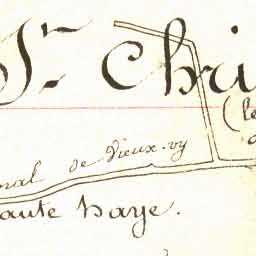 St Chri
(le
nal de Vieux-vy
aute haye.